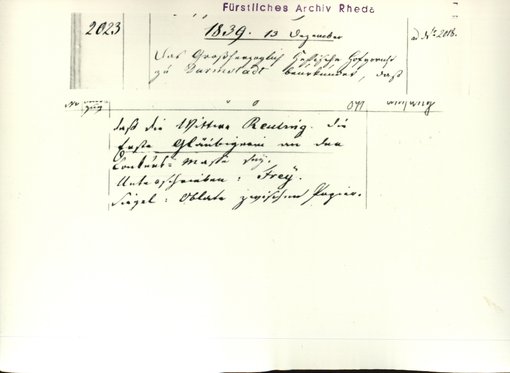 Fürstliches Archiv Rheda
2023 1839. 13 Dezember ad No. 2018.
Das Großherzoglich Hessische Hofgericht
zu Darmstadt beurkundet, daß
daß die Wittwe Rentrug die
erste Gläubigerin an der
Concurs-Masse sey.
Unterschrieben: Frey.
Siegel: Oblate zwischen Papier.